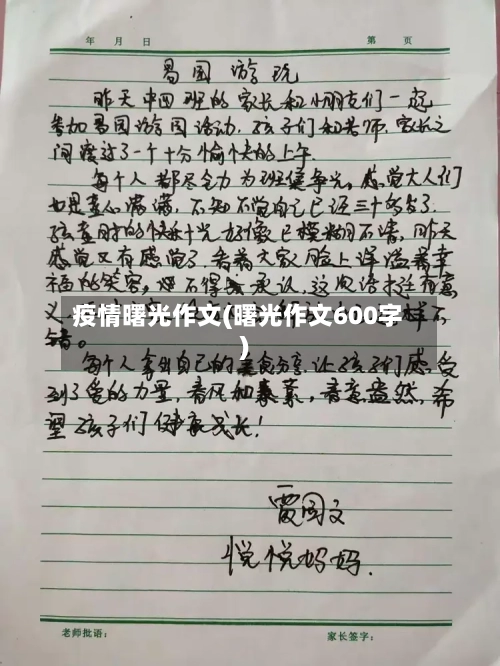 年 月 日 第 页
昌园游玩
昨天中四班的家长和小朋友们一起
参加昌园游园活动，孩子们和老师，家长之
间度过了一个十分愉快的上午.
每个人都尽全力为班集争光，感觉大人们
也是童心满满，不知不觉自己已经三十多岁了.
孩童时的快乐时光好像已模糊不清，昨天
感觉又有感觉了，看着大家脸上洋溢着幸
福的笑容，不得承认，这次活动有意
义
疫情曙光作文(曙光作文600字
)
样不
错。
每个人拿出自己的美食分享，让孩子们感受
到了爱的力量，春风如暮，春意盎然，希
望孩子们健康成长！
贾国文
悦悦妈妈.
老师批语： 家长签字：